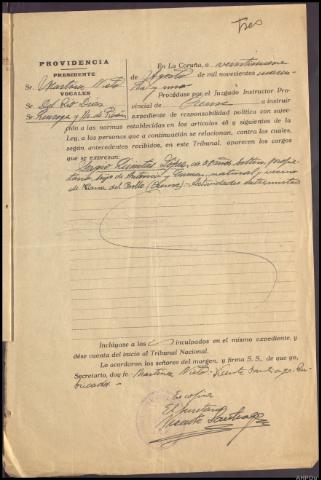 Tres
PROVIDENCIA
PRESIDENTE
Sr. Martinez Nieto
VOCALES
Sr. Del Rio Dias
Sr.
En La Coruña, a veintinueve
de Agosto de mil novecientos cuaren-
ta y uno
Procédase por el Juzgado Instructor Pro-
vincial de Orense a instruir
expediente de responsabilidad política con suje-
ción a las normas establecidas en los artículos 48 y siguientes de la
Ley, a las personas que a continuación se relacionan, contra los cuales,
según antecedentes recibidos, en este Tribunal, aparecen los cargos
que se expresan.
Sergio años, soltero, propie-
tario, hijo de Antonio y natural y vecino
de Viana del Bollo (Orense)
Inclúyase a los inculpados en el mismo expediente, y
dése cuenta del inicio al Tribunal Nacional.
Lo acordaron los señores del margen, y firma S. S. de que yo,
Secretario, doy fe. Martinez Nieto. Vicente Santiago. Ru-
bricados.-
Es copia
El Secretario
Vicente Santiago
AHPOU